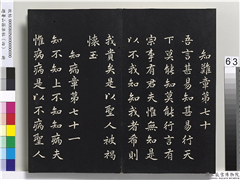 知難章第七十
吾言甚易知甚易行天
下莫能知莫能行言有
宗事有君夫惟無知是
以不我知知我者希則
我貴矣是以聖人被褐
懷玉
知病章第七十一
知不知上不知知病夫
惟病病是以不病聖人
63